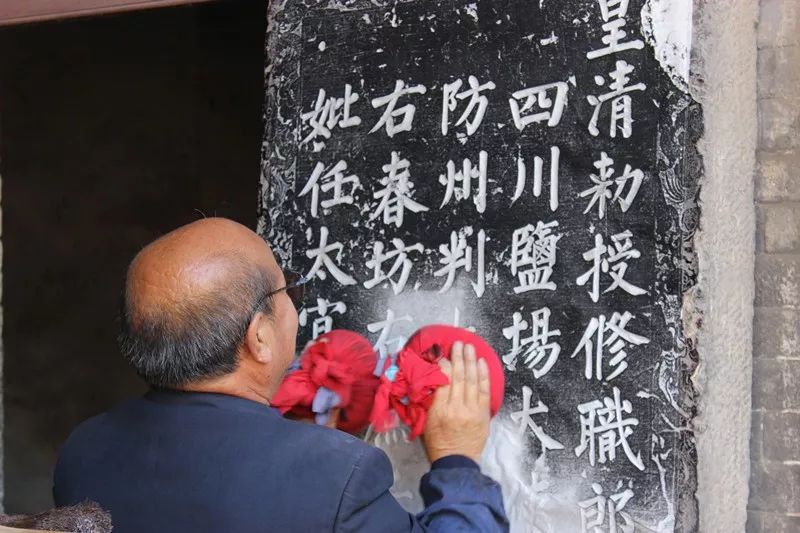 皇清勅授修職郎
四川鹽場大
防州判
右春坊右
妣任太宜